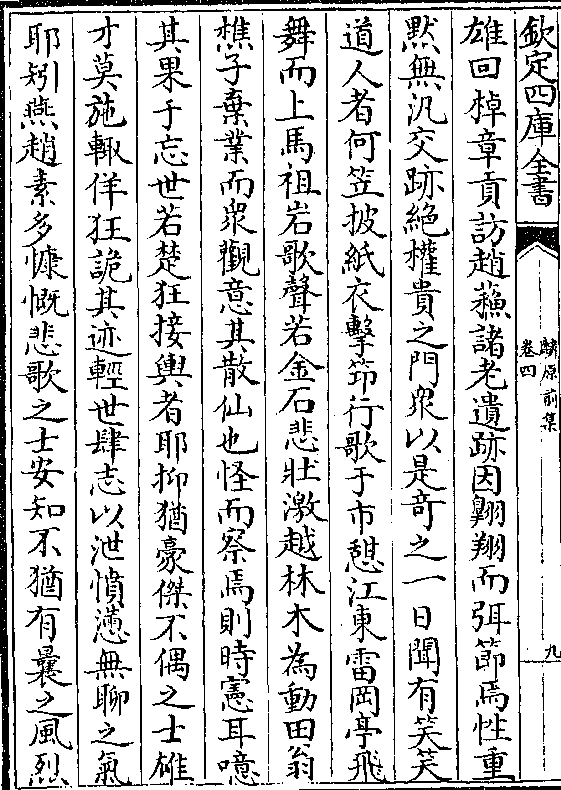 欽定四庫全書
麟原前集
卷四
九
雄回棹章貢訪趙蘓諸老遺跡因翺翔而弭節焉性重
黙無汎交跡絶權貴之門衆以是奇之一日聞有笑笑
道人者何笠披紙衣擊筇行歌于市憩江東雷岡亭飛
舞而上馬祖岩歌聲若金石悲壯激越林木為動田翁
樵子棄業而衆觀意其散仙也怪而察焉則時憲耳噫
其果于忘世若楚狂接輿者耶抑猶豪傑不偶之士雄
才莫施輙佯狂詭其迹輕世肆志以泄憤懣無聊之氣
耶矧燕趙素多慷慨悲歌之士安知不猶有曩之風烈